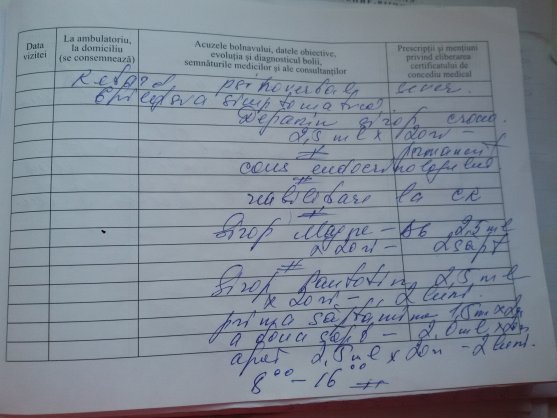 Data
vizitei
La ambulatoriu,
la domiciliu
(se consemnează)
Acuzele bolnavului, datele obiective,
evoluția și diagnosticul bolii,
semnăturile medicilor și ale consultanților
Prescripții și mențiuni
privind eliberarea
certificatului de
concediu medical
Retard psihoverbal sever.
Epilepsia simptomatică.
Depakin sirop crono.
2,5 ml x 2 ori –
permanent
cons endocrinologului
reabilitare la CR
Sirop Magne – B6 2,5 ml
x 2 ori – 2 săpt
Sirop Pantotin 2,5 ml
x 2 ori – 2 luni.
prima săptămîna 1,5 ml x 2 ori
a doua săpt – 2,0 ml x 2 ori
apoi 2,5 ml x 2 ori – 2 luni.
8 00 – 16 00